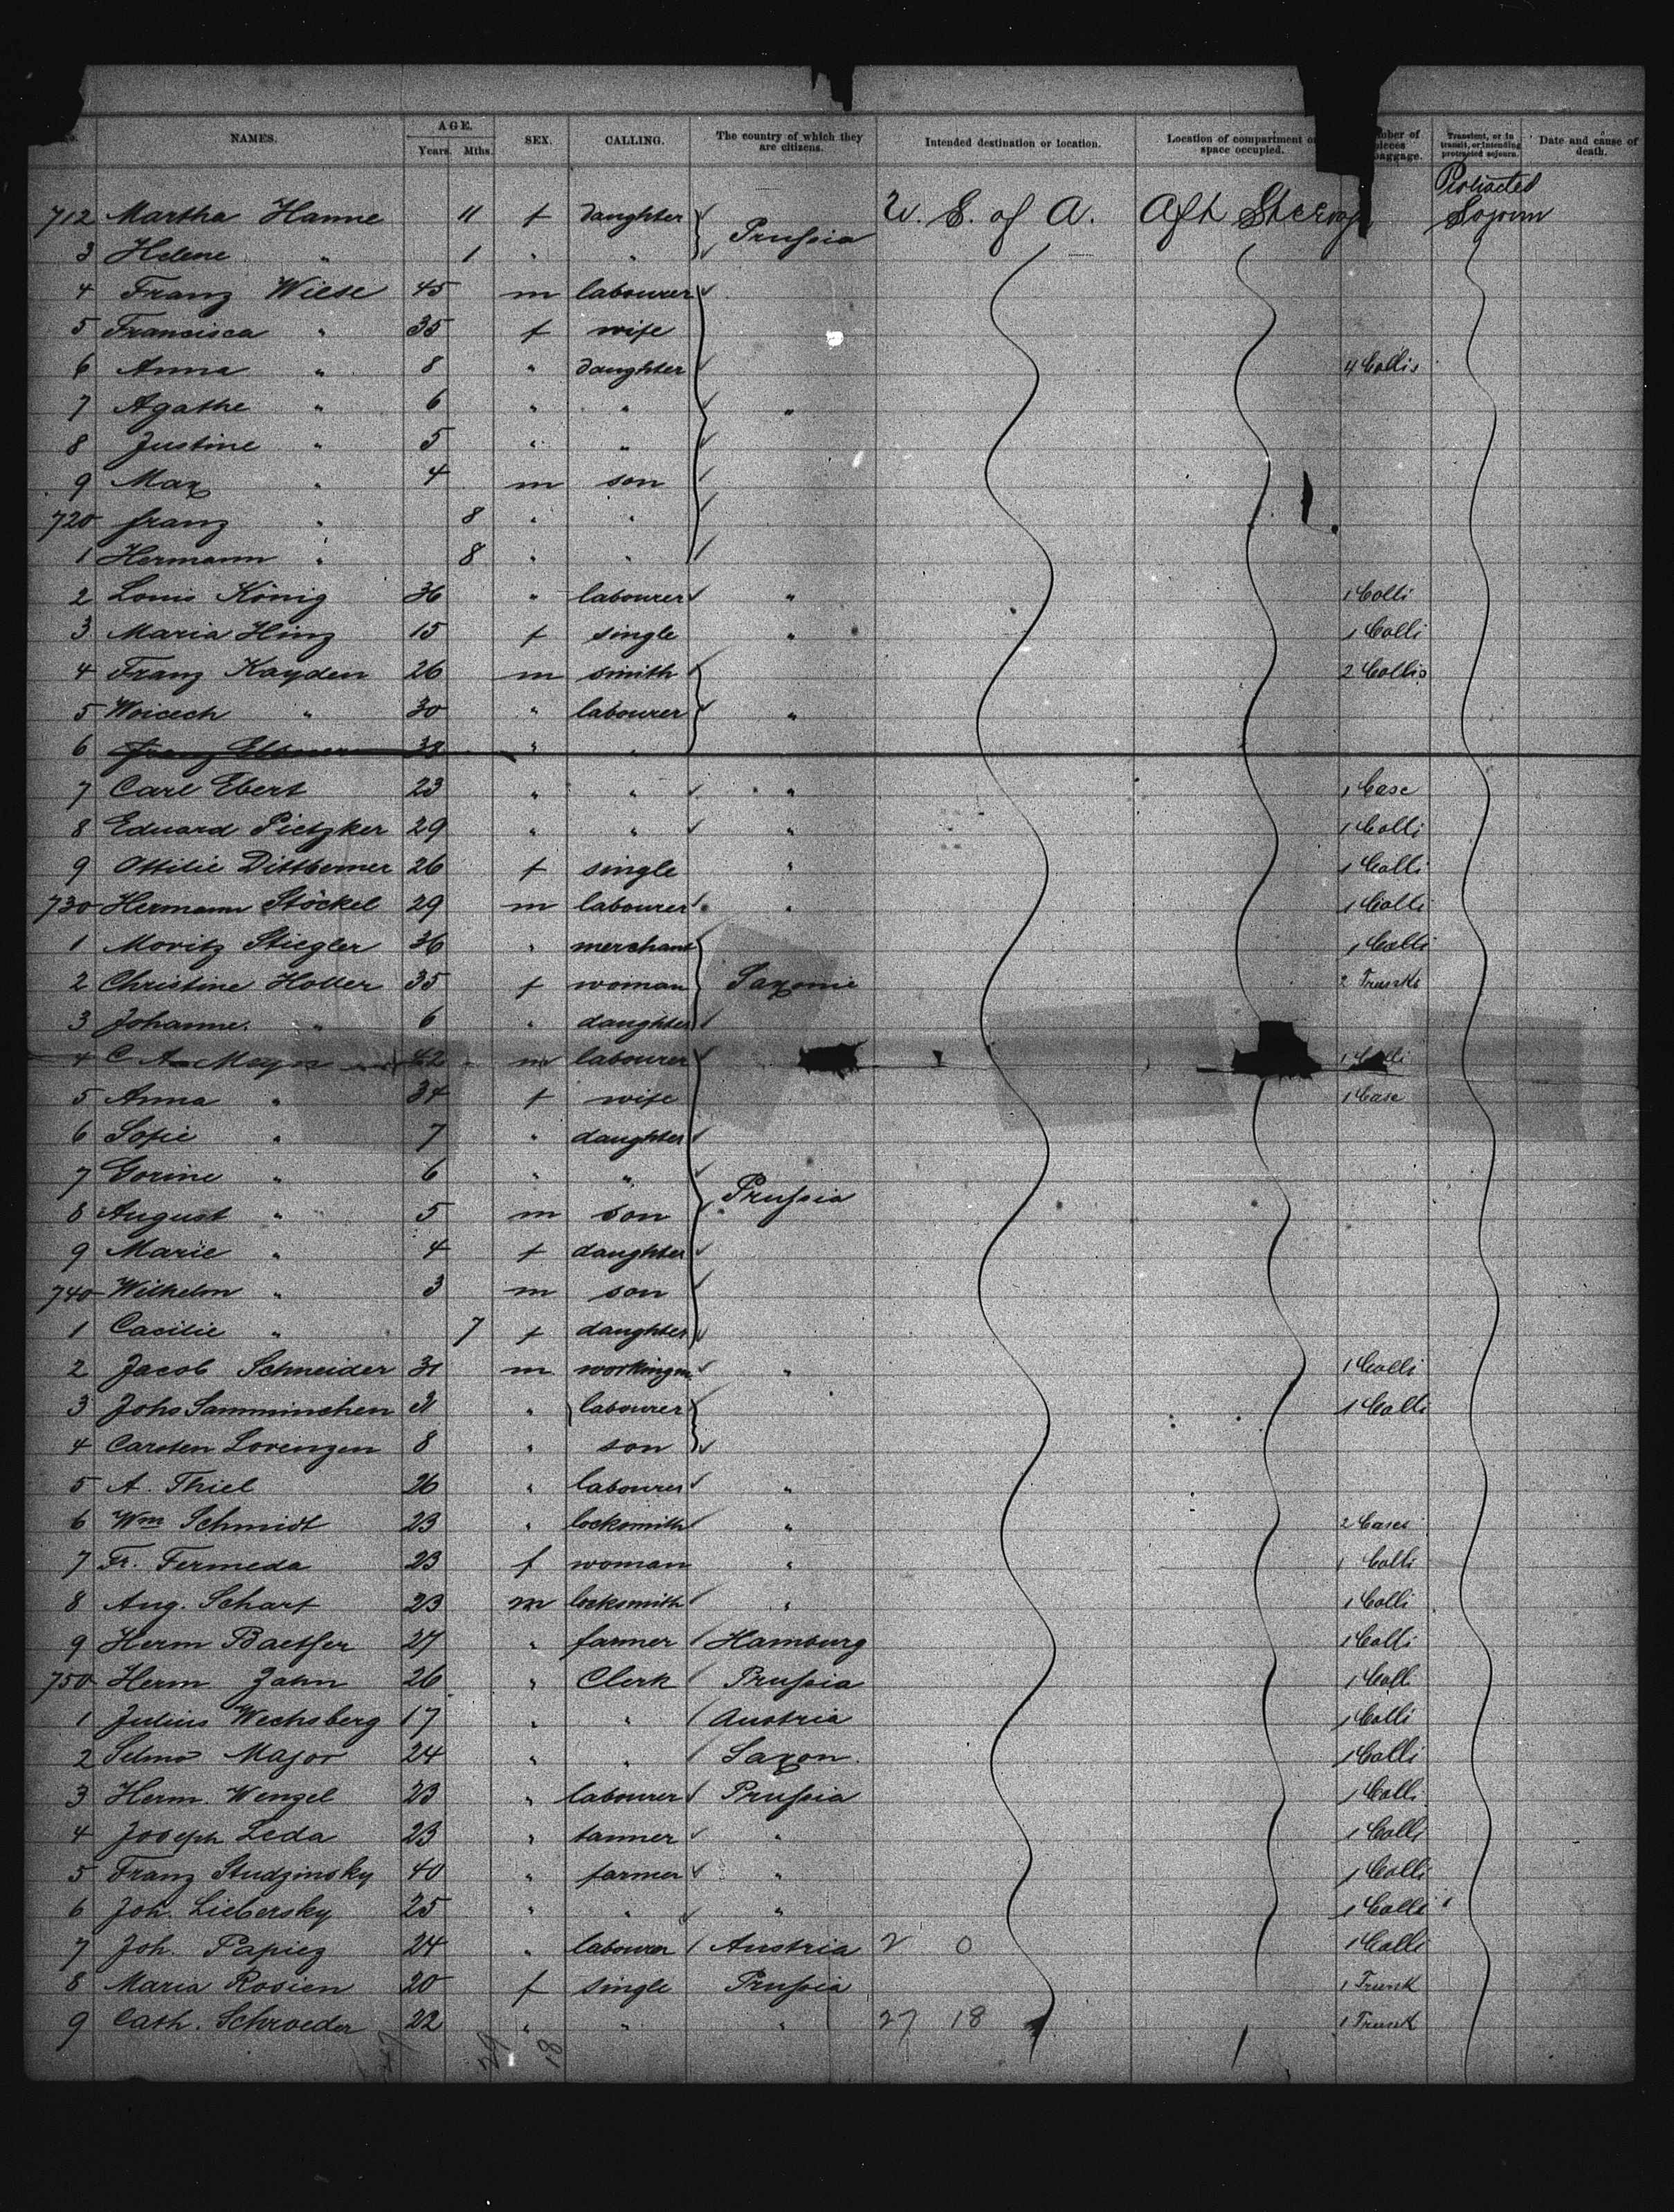 NAMES. AGE. Years. Mths. SEX. CALLING. The country of which they are citizens. Intended destination or location. Location of compartment or space occupied. Number of pieces baggage. Transient, or in transit, or intending protracted sojourn. Date and cause of death.
712 Martha Hanne 11 f daughter Prussia U. S. of A. Aft Steerage Protracted Sojourn
3 Helene " 1 " "
4 Franz Wiese 45 m labourer
5 Francisca " 35 f wife
6 Anna " 8 " daughter 4 Collis
7 Agathe " 6 " " "
8 Justine " 5 " "
9 Max " 4 m son
720 Franz " 8 " "
1 Hermann " 8 " "
2 Louis König 36 " labourer " 1 Colli
3 Maria Hinz 15 f single " 1 Colli
4 Franz Kayden 26 m smith 2 Collis
5 Woicech " 30 " labourer "
6 Franz 38 " "
7 Carl Ebert 23 " " " 1 Case
8 Eduard Pietzker 29 " " " 1 Colli
9 Ottilie Dittberner 26 f single " 1 Colli
730 Hermann Stöckel 29 m labourer " 1 Colli
1 Moritz Stiegler 36 " merchant 1 Colli
2 Christine Holler 35 f woman Saxonie 2 Trunks
3 Johanne " 6 " daughter
4 C A Meyer 42 m labourer 1 Colli
5 Anna " 34 f wife 1 Case
6 Sofie " 7 " daughter
7 Gorine " 6 " " Prussia
8 August " 5 m son
9 Marie " 4 f daughter
740 Wilhelm " 3 m son
1 Cacilie " 7 f daughter
2 Jacob Schneider 31 m workingm. " 1 Colli
3 Johs Samminchen 31 " labourer 1 Colli
4 Carsten Lorenzen 8 " son
5 A. Thiel 26 " labourer "
6 Wm Schmidt 23 " locksmith " 2 Cases
7 Fr. Fermeda 23 f woman " 1 Colli
8 Aug. Scharf 23 m locksmith " 1 Colli
9 Herm Baetsser 27 " farmer Hamburg 1 Colli
750 Herm Zahn 26 " Clerk Prussia 1 Colli
1 Julius Wechsberg 17 " " Austria 1 Colli
2 Selmo Major 24 " " Saxon. 1 Colli
3 Herm. Wenzel 23 " labourer Prussia 1 Colli
4 Joseph Leda 23 " tanner " 1 Colli
5 Franz Studzinsky 40 " farmer " 1 Colli
6 Joh. Liebersky 25 " " " 1 Colli
7 Joh. Papiez 24 " labourer Austria 2 0 1 Colli
8 Maria Rosien 20 f single Prussia 1 Trunk
9 Cath. Schroeder 22 " " " 27 18 1 Trunk
29 18